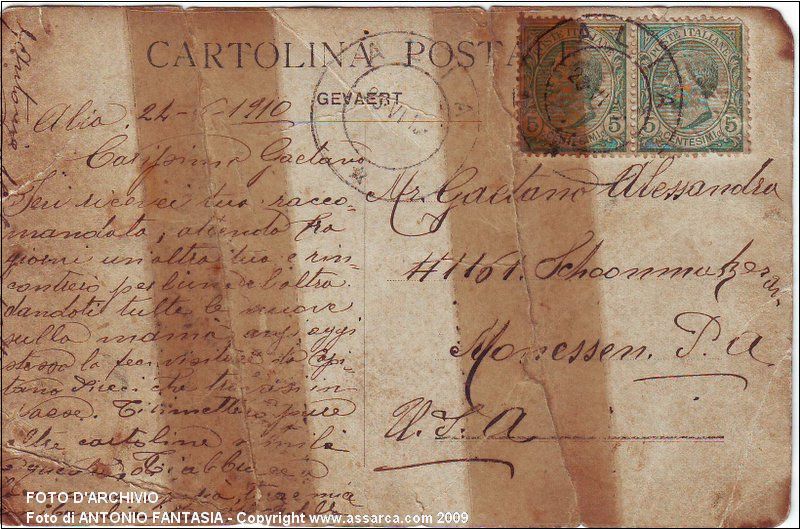 CARTOLINA POSTALE
GEVAERT
ALIA
POSTE ITALIANE
5 CENTESIMI 5
5 CENTESIMI 5
Alia. 24-6-1910
Carissimo Gaetano
Ieri ricevei tua racco-
mandata, attendo fra
giorni un'altra tua e rin-
contrerò per l'una e l'altra
dandoti tutte le nuove
sulla mamà, anzi oggi
stesso la feci visitare da
pace. Ti rimetterò pure
altre cartoline simili
a questa. Ti abbraccia
Mr. Gaetano Alessandra
#1161. Schoonmaker av.
Monessen. P.a
U.S.A
FOTO D'ARCHIVIO
Foto di ANTONIO FANTASIA - Copyright www.assarca.com 2009